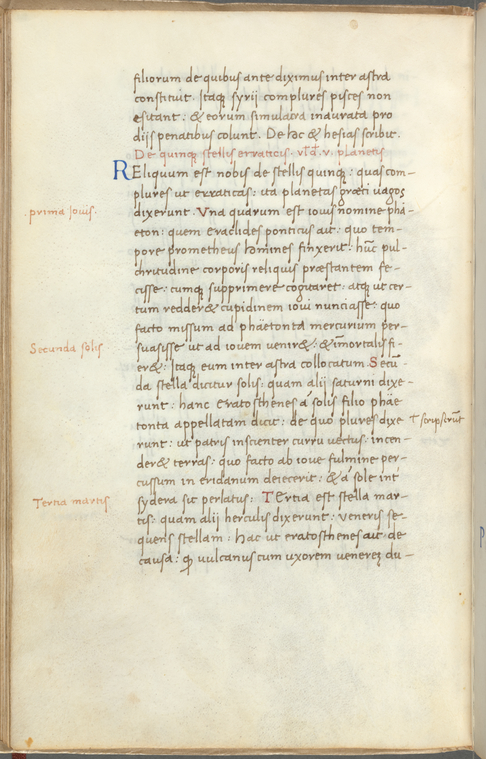 filiorum de quibus ante diximus inter astra
constituit. Itaq syrij complures pisces non
esitant: & eorum simulacra inaurata pro
dijs penatibus colunt. De hoc & hesias scribit.
De quinq stellis erraticis. vłđ. v. planetis
REliquum est nobis de stellis quinq: quas com-
plures ut erraticas: ita planetas græci uagos
prima Jouis.
dixerunt. Vna quarum est iouis nomine phä-
eton: quem eraclides ponticus ait: quo tem-
pore prometheus homines finxerit: hūc pul-
chritudine corporis reliquis præstantem fe-
cisse: cumq supprimere cogitaret: atq ut cer-
tum reddere & cupidinem ioui nunciasse: quo
facto missum ad phäetonta mercurium per-
Secunda solis
suasisse ut ad iouem venire: & īmortalis fi-
ere: Itaq eum inter astra collocatum. Secū-
da stella dicitur solis: quam alij saturni dixe-
runt: hanc eratosthenes a solis filio phäe
tonta appellatam dicit: de quo plures dixe
T scripserūt
runt: ut patris inscienter curru vectus: incen-
dere terras: quo facto ab ioue fulmine per-
cussum in eridanum deiecerit: & a sole int
Tertia martis
sydera sit perlatus: TErtia est stella mar-
tis: quam alij herculis dixerunt: veneris se-
quens stellam: hac ut eratosthenes ait de
causa: q uulcanus cum uxorem venerez du-